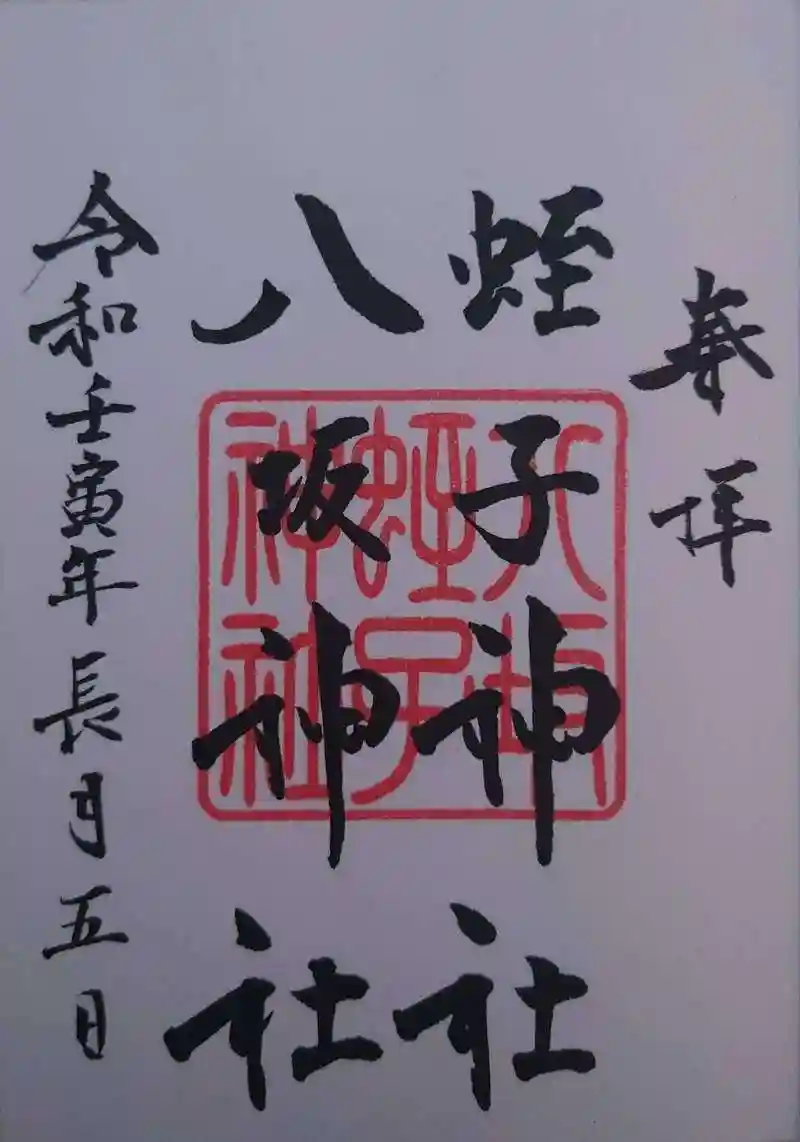 奉拝
蛭子神社
八坂神社
令和壬寅年長月五日
八坂
蛭子
神社